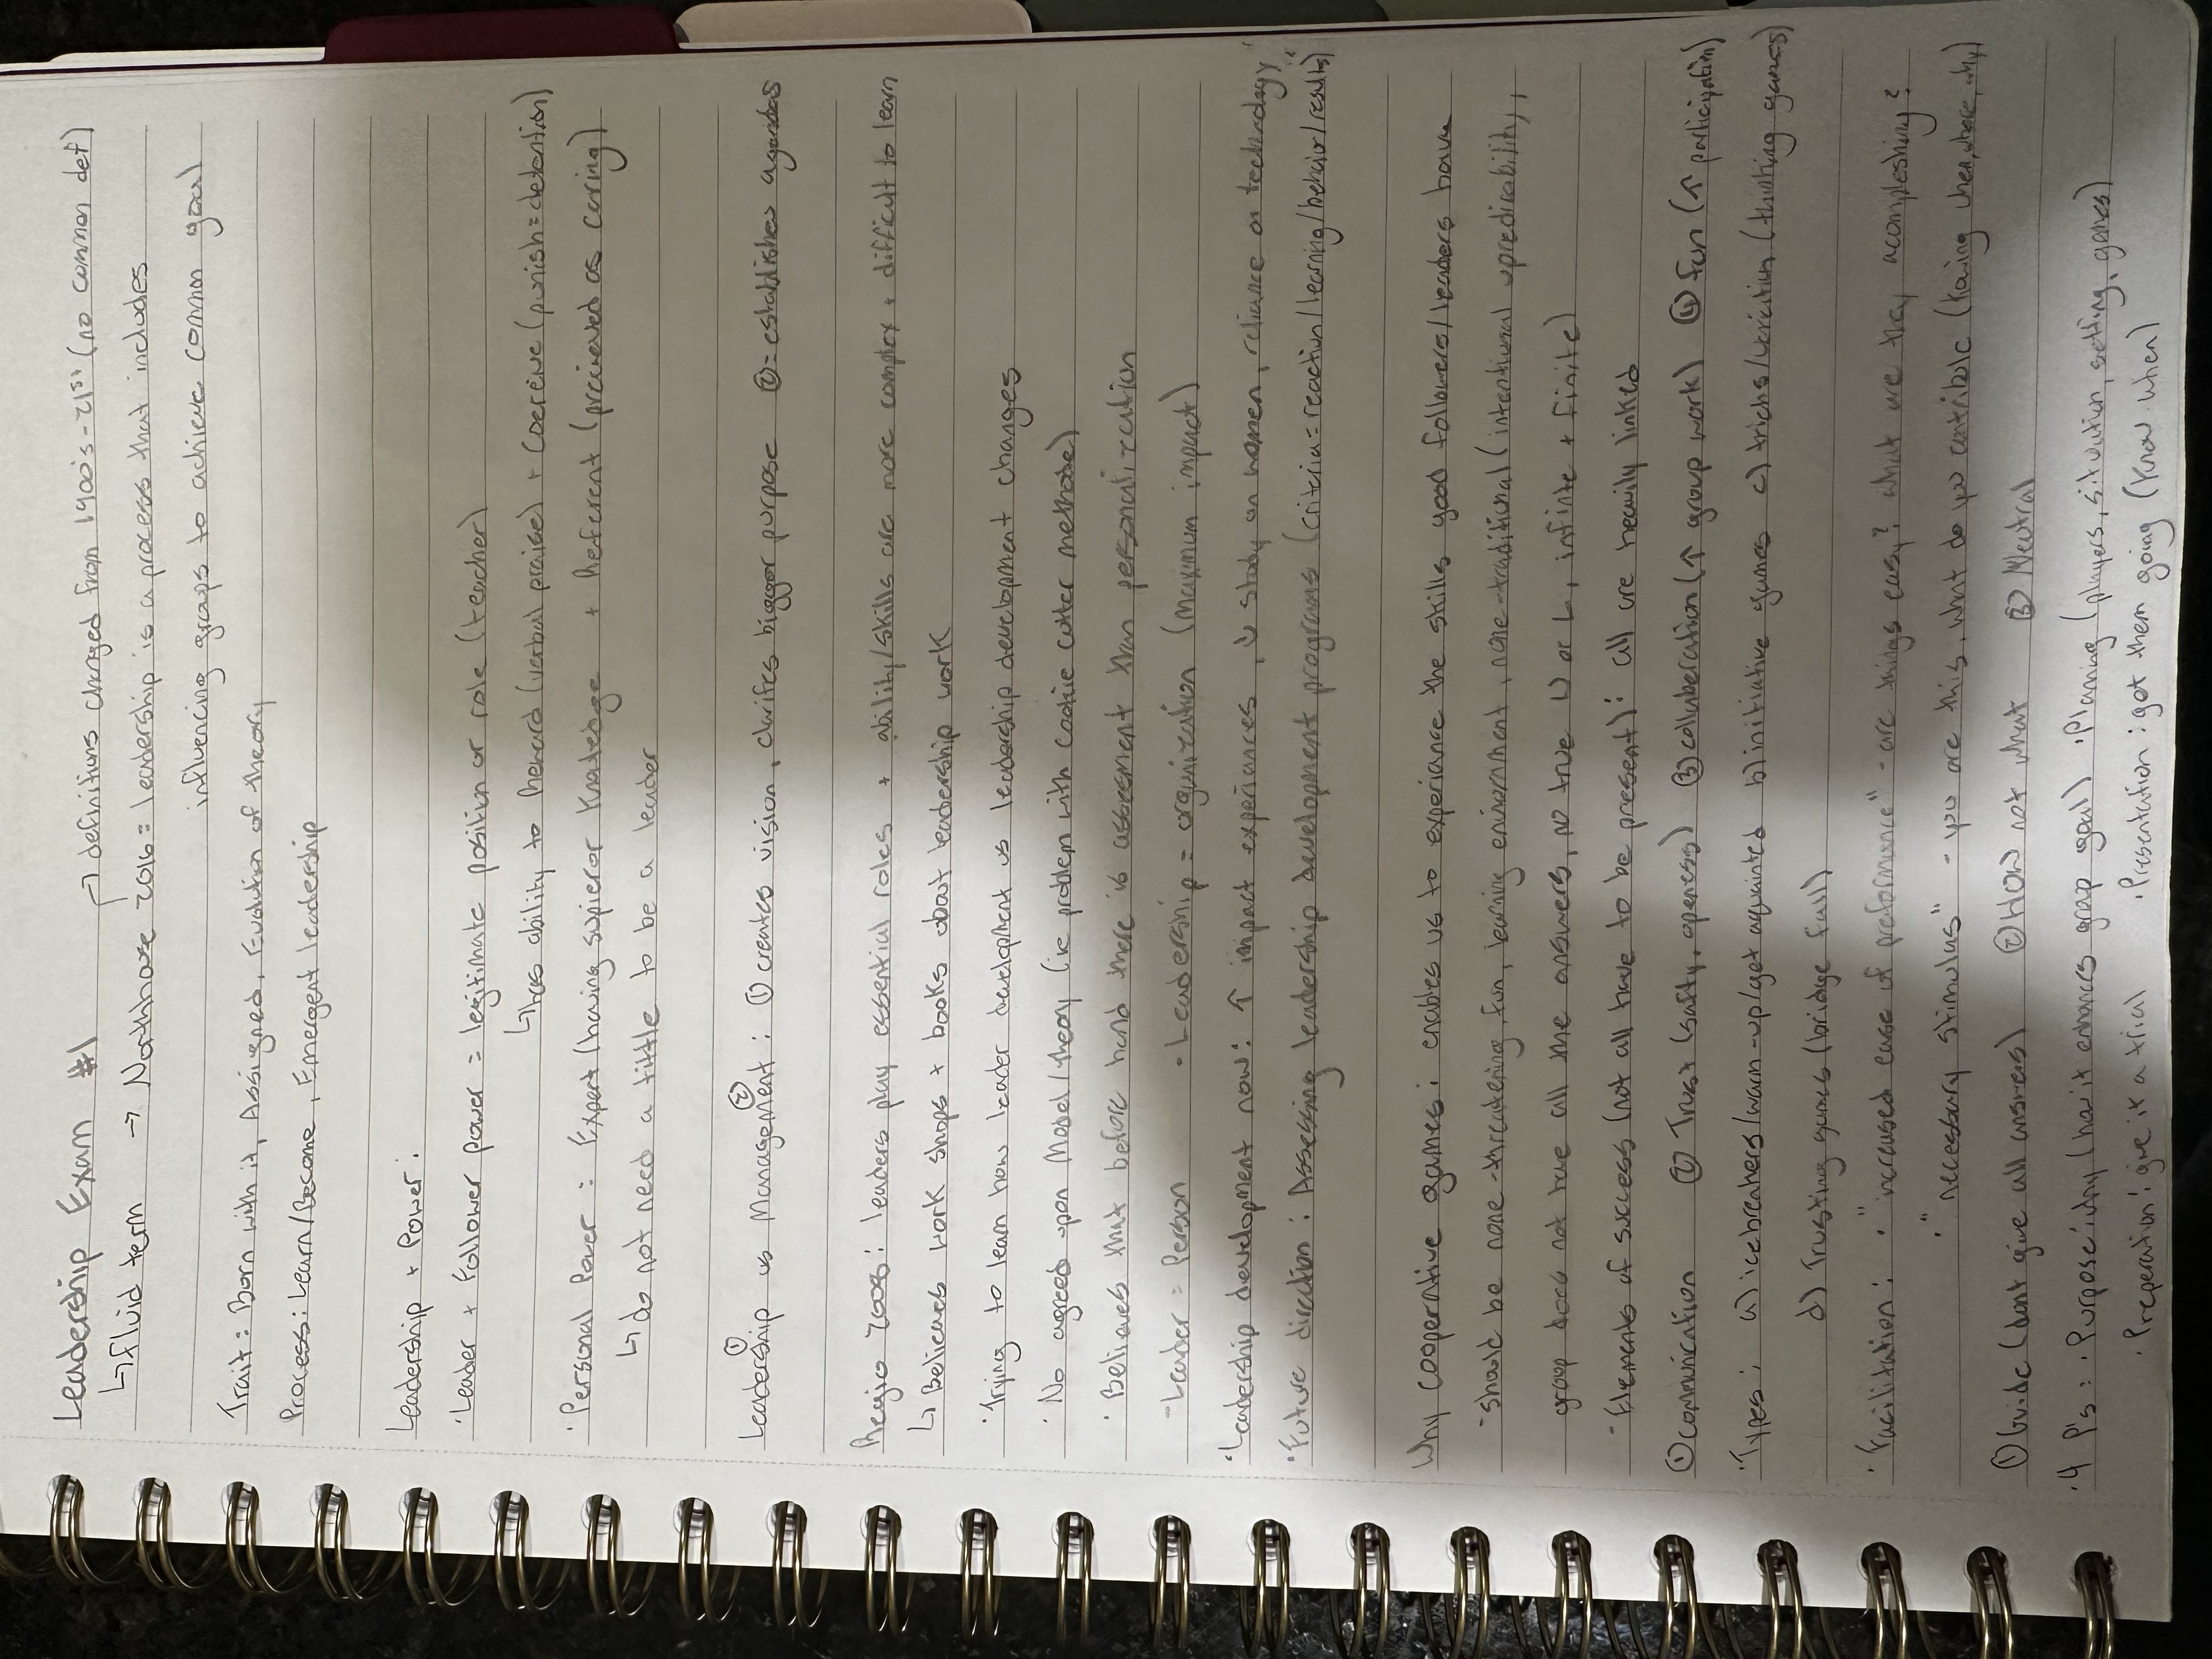 Leadership Exam #1
→ definitions changed from 1900's - 21st (no common def)
↳ fluid term → Northhouse 2016 = leadership is a process that includes
influencing groups to achieve common goal
Trait: Born with it, Assigned, Evolution of theory
Process: Learn/Become, Emergent leadership
Leadership + Power:
· Leader + Follower power = legitimate position or role (teacher)
↳ has ability to Reward (verbal praise) + Coercive (punish = detention)
· Personal Power: Expert (having supieror knowledge + Referent (precieved as caring)
↳ do not need a tittle to be a leader
① ②
Leadership vs Management: ① creates vision, clarifes bigger purpose ② = establishes agendas
Regio 2008: leaders play essential roles + ability/skills are more complex + difficult to learn
↳ Believes work shops + books about leadership work
· Trying to learn how leader development vs leadership development changes
· No agreed upon Model/theory (ie problem with cookie cutter methode)
· Believes that before hand there is assesment than personalization
- Leader = Person - Leadership = organization (maximum impact)
· Leadership development now: ↑ impact experiances, ↓ study on women, reliance on technology
· Future direction: Assessing leadership development programs (criteria = reaction/learning/behavior/results)
Why cooperative games: enables us to experiance the skills good followers/leaders have
- should be none-threatering, fun, learning enviornment, none-traditional (intentional upredicability,
group does not have all the answers, no true W or L, infinte + finite)
- Elements of success (not all have to be present): all are heavily linked
① communication ② Trust (safty, openess) ③ collaberation (↑ group work) ④ fun (↑ participation)
· Types: a) icebreakers/warm-up/get aquainted b) initiative games c) tricks/ (thinking games)
d) Trusting games (bridge fall)
· Facilitation: · "increased ease of preformance" - are things easy? what are they acompleshing?
· "necessary stimulus" - you are this, what do you contribute (knowing when, where, why)
① Guide (dont give all answers) ② HOW not what ③ Neutral
· 4 P's: · Purpose: why (how it enhances group goal) · Planning (players, situation, setting, games)
· Preperation: give it a trial · Presentation: get them going (know when)